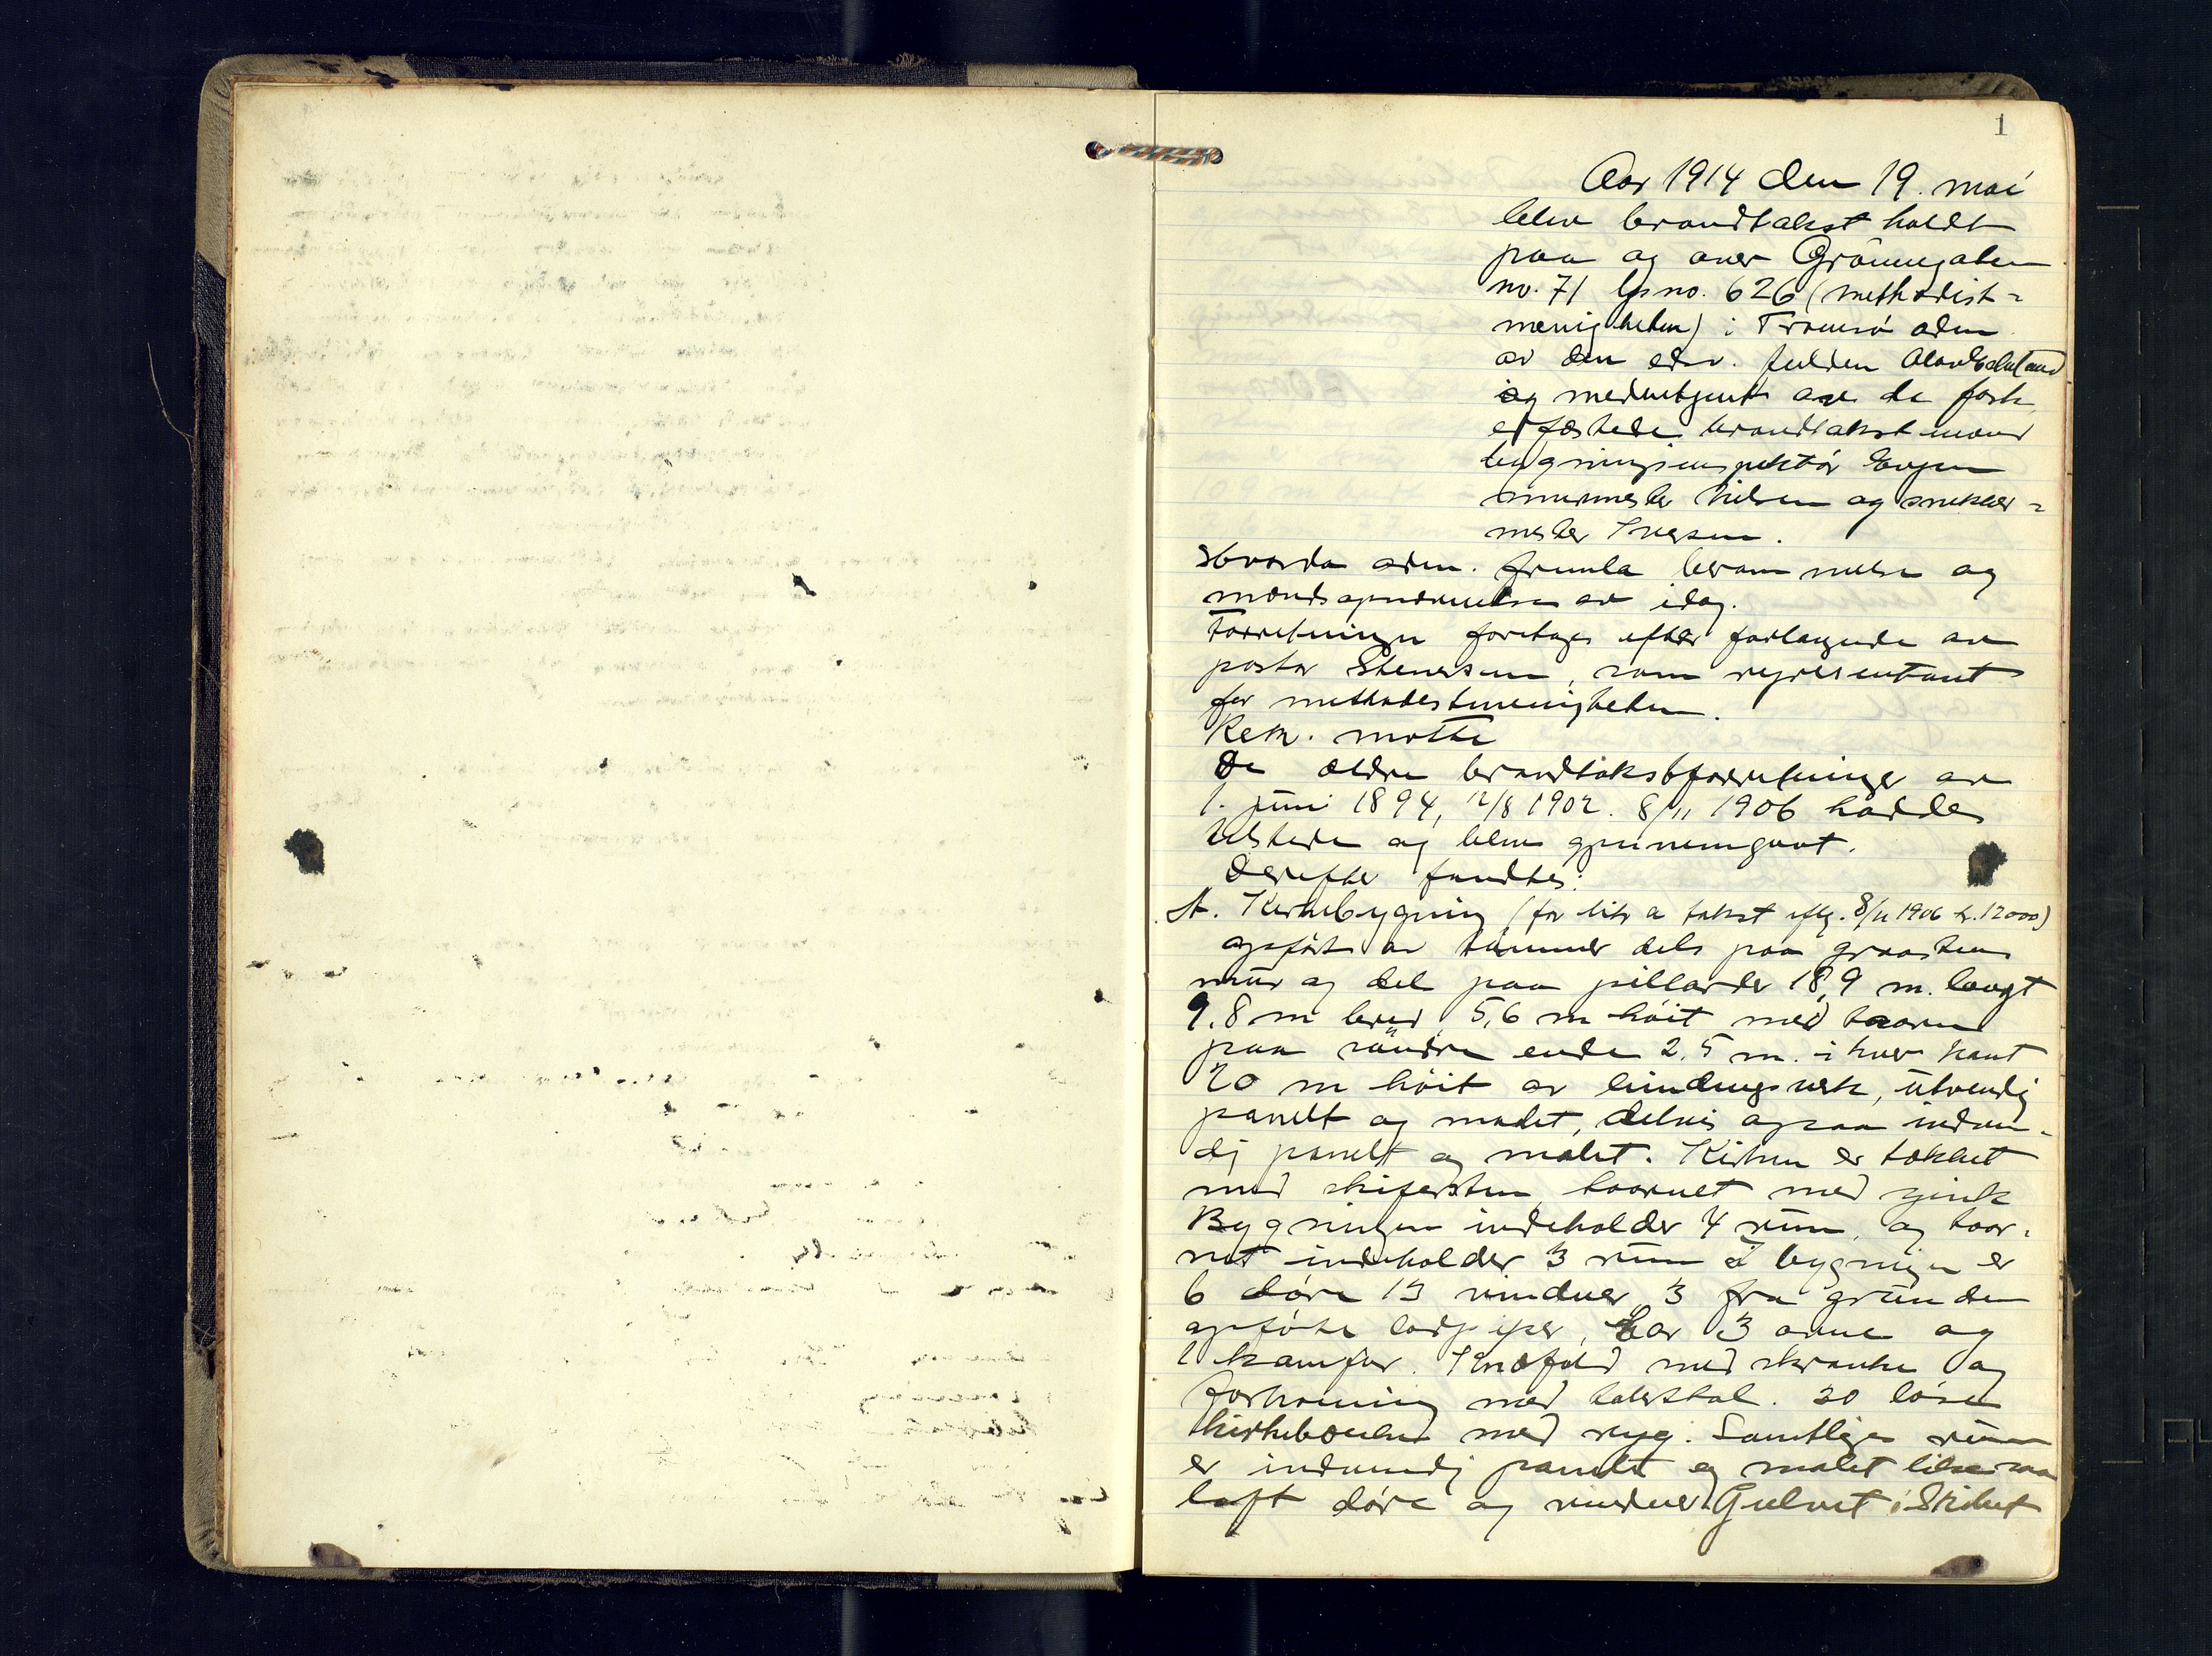 1
Aar 1914 den 19. mai
blev brandtakst holdt
paa og over Grønnegaten
no. 71 lps no. 626 (methodist-
menigheten) i Tromsø
av den edsv. fuldm.
og medutgjort av de
edfæstede brandtakstmænd
bygningsinspektør
murmester Nilsen og snekker-
mester Iversen.
fremla berammelse og
mandsopnævnelse av idag.
Forretningen foretages efter forlangende av
pastor Stenersen, som representant
for methodistmenigheten.
Rekv. møtte
De ældre brandtakstforretninger av
1. juni 1894, 12/8 1902. 8/11 1906 haddes
tilstede og blev gjennemgaat.
Derefter fandtes:
A. Kirkebygning (før litr a takst eftr. 8/11 1906 kr. 12000)
opført av tømmer dels paa graastens
mur og dels paa pillarder 18,9 m. langt
9.8 m bred, 5,6 m høit med taarn
paa søndre ende 2.5 m. i hver kant
20 m høit av bindingsverk, utvendig
panelt og malt, delvis ogsaa indven-
dig panelt og malet. Kirken er tækket
med skifersten, taarnet med zink
Bygningen indeholder 4 rum, og taar-
net indeholder 3 rum i bygningen er
6 døre 13 vinduer, 3 fra grunden
opførte lodpiper, har 3 ovne og
1 komfur. Knæfald med skranke og
forhøining med talerstol. 30 løse
kirkebænker med ryg. Samtlige rum
er indvendig panelt og malet likesaa
loft døre og vinduer. Gulvet i